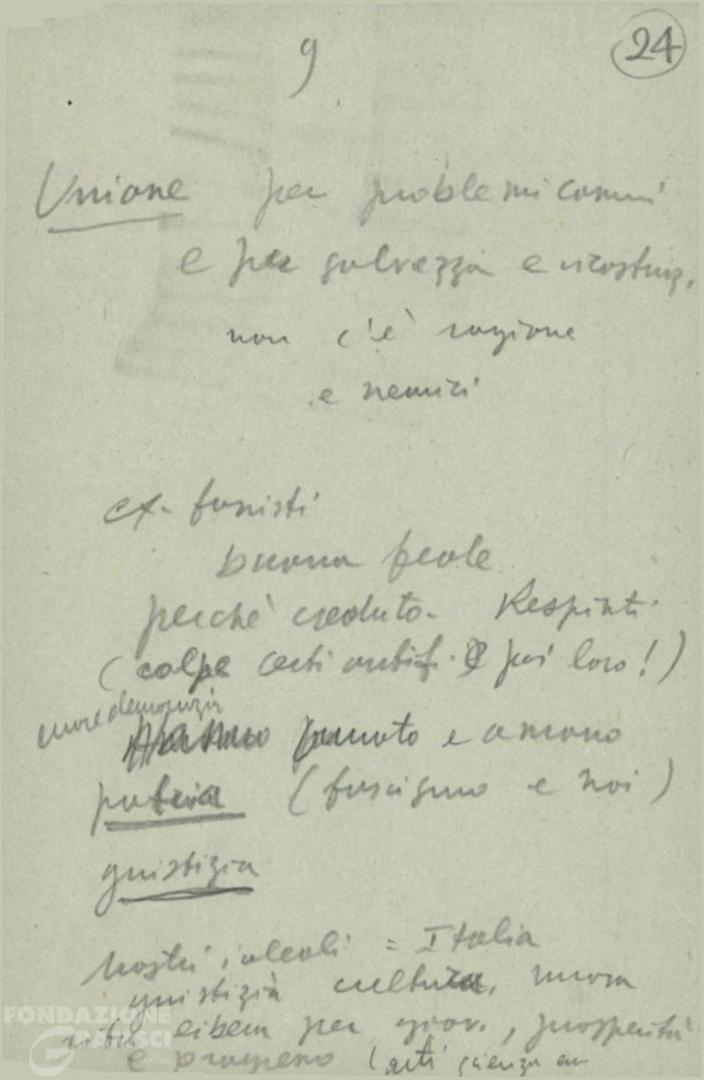 9
24
Unione per problemi comuni
e per salvezza e ricostruz.
non c'è ragione
e nemici
ex-fascisti
buona fede
perché creduto - Respinti
(colpe certi antif. e poi loro!)
more democrazia
Hanno amato e amano
patria (fascismo e noi)
giustizia
nostri ideali = Italia
giustizia cultura, nuova
vita libera per giov., prosperità
e progresso (arti scienza
FONDAZIONE
GRAMSCI